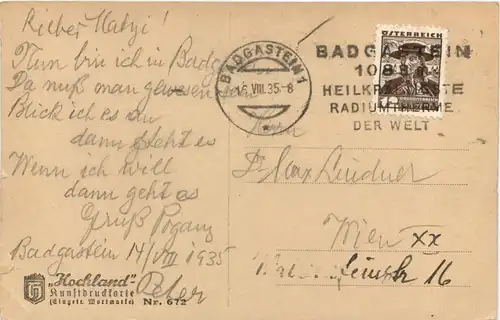 Lieber Matyi!
Nun bin ich in Badg
Da muß man gewesen
Blick ich es an
dann steht es
Wenn ich will
dann geht es
Gruß
Badgastein 14/VIII 1935
Peter
"Hochland"-
Kunstdruckkarte
(Eingetr. Wortmarke)
Nr. 672
BADGASTEIN 1
16. VIII. 35 - 8
BADGASTEIN
HEILKR
RADIUMTHERME
DER WELT
ÖSTERREICH
Herrn
Dr Max Lindner
Wien XX
16